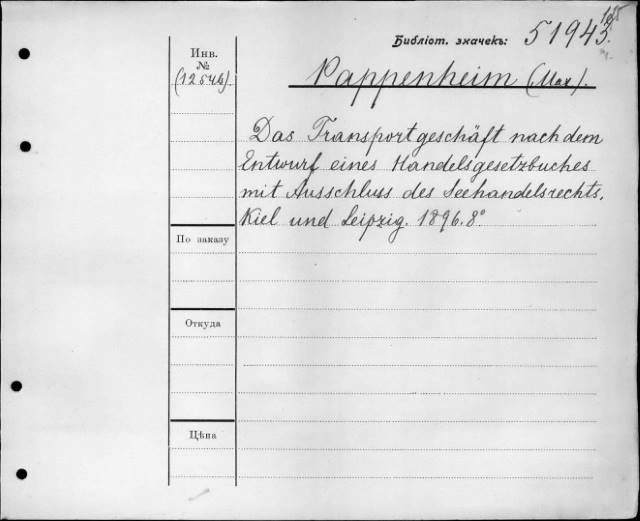 Библіот. значекъ: 51943
Инв.
№
(12546).
Pappenheim (Max).
Das Transportgeschäft nach dem
Entwurf eines Handelsgesetzbuches
mit Ausschluss des Seehandelsrechts.
Kiel und Leipzig. 1896. 8°
По заказу
Откуда
Цѣна